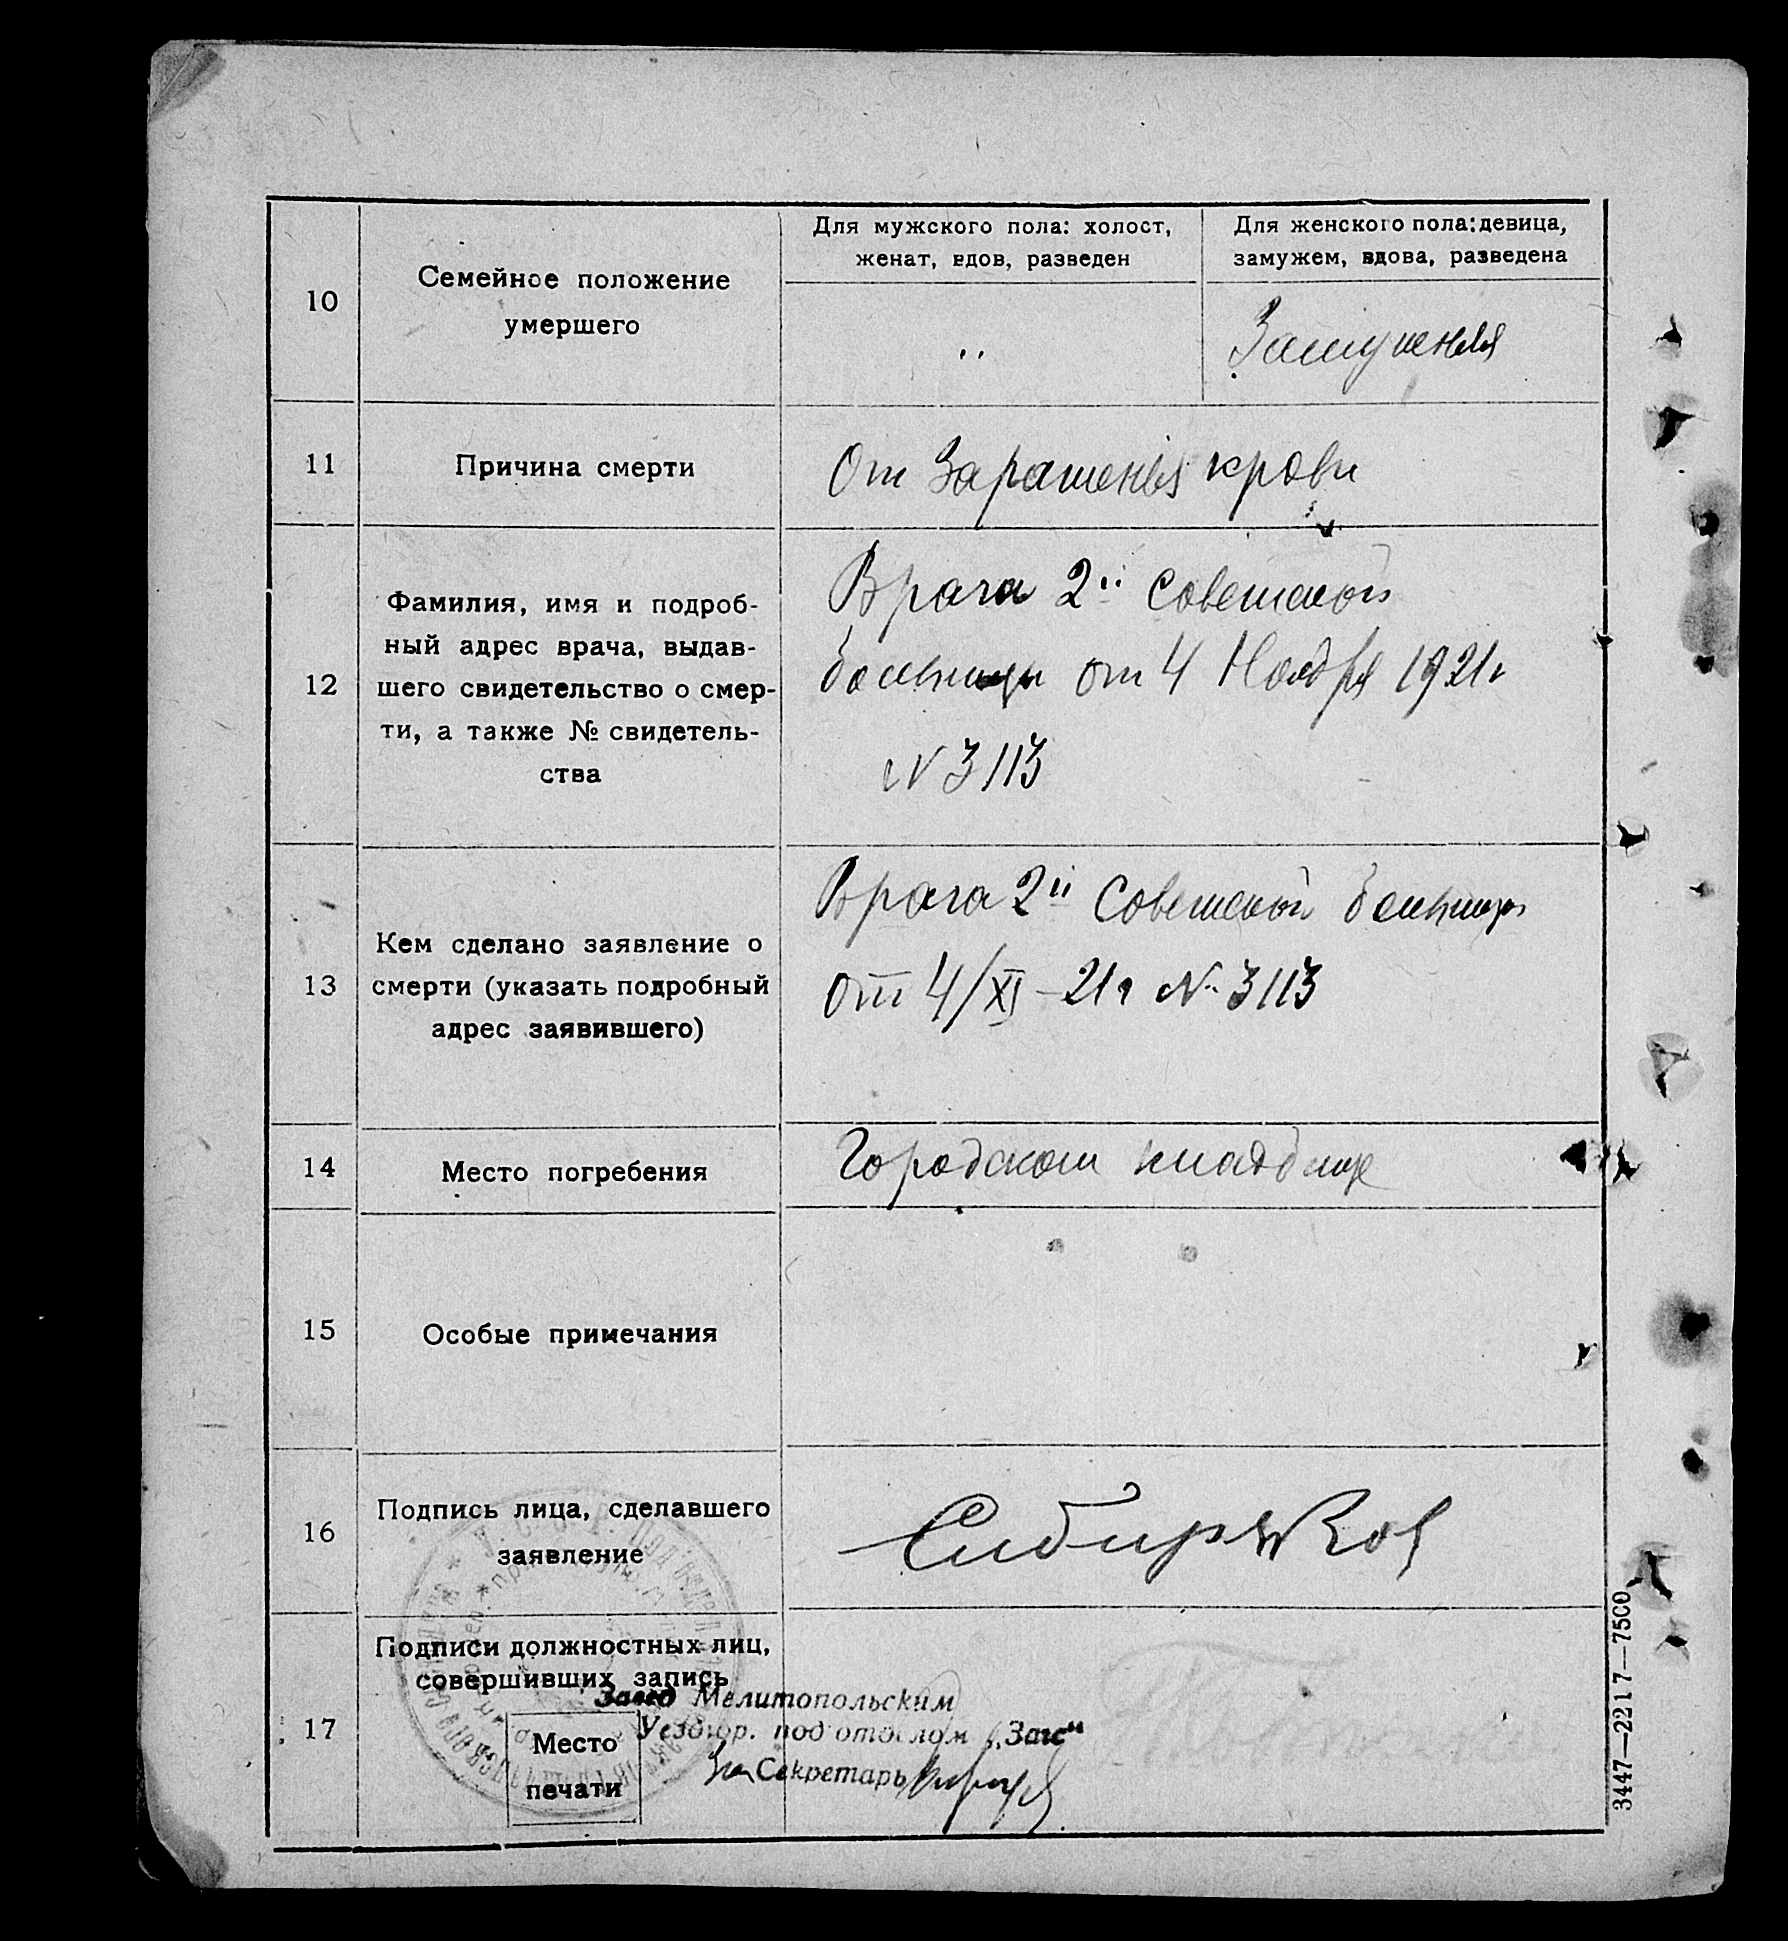 10
Семейное положение
умершего
Для мужского пола: холост,
женат, вдов, разведен
Для женского пола: девица,
замужем, вдова, разведена
"
Замужняя
11
Причина смерти
От Зарашения крови
12
Фамилия, имя и подроб-
ный адрес врача, выдав-
шего свидетельство о смер-
ти, а также № свидетель-
ства
Врача 2й Советской
больницы от 4 Ноября 1921г
N 3113
13
Кем сделано заявление о
смерти (указать подробный
адрес заявившего)
Врача 2й Советской больницы
от 4/XI - 21г N. 3113
14
Место погребения
Городском кладбище
15
Особые примечания
16
Подпись лица, сделавшего
заявление
Сибиряков
17
Подписи должностных лиц,
совершивших запись
Место
печати
Завед Мелитопольским
Уездгор. подотделом „Загс“
За Секретарь
3447—2217—7500